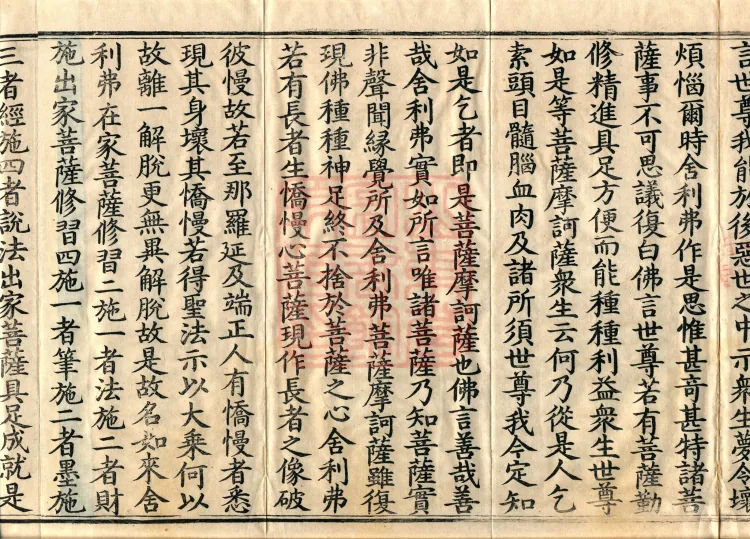 言世尊我能於後惡世之中示衆生夢令壞
煩惱爾時舍利弗作是思惟甚竒甚特諸菩
薩事不可思議復白佛言世尊若有菩薩勤
修精進具足方便而能種種利益衆生世尊
如是等菩薩摩訶薩衆生云何乃從是人乞
索頭目髓腦血肉及諸所須世尊我今定知
如是乞者即是菩薩摩訶薩也佛言善哉善
哉舍利弗實如所言唯諸菩薩乃知菩薩實
非聲聞緣覺所及舍利弗菩薩摩訶薩雖復
現佛種種神足終不捨於菩薩之心舍利弗
若有長者生憍慢心菩薩現作長者之像破
彼慢故若至那羅延及端正人有憍慢者悉
現其身壞其憍慢若得聖法示以大乘何以
故離一解脫更無異解脫故是故名如來舍
利弗在家菩薩修習二施一者法施二者財
施出家菩薩修習四施一者筆施二者墨施
三者經施四者說法出家菩薩具足成就是